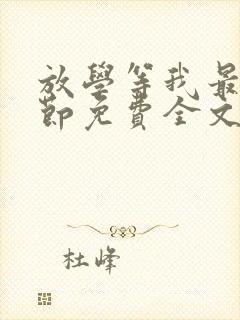 放學等我最
節免費全文
杜峰